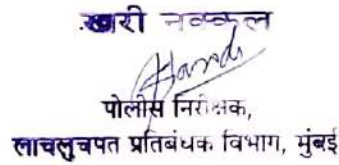 खरी नक्कल
पोलीस निरीक्षक,
लाचलुचपत प्रतिबंधक विभाग, मुंबई